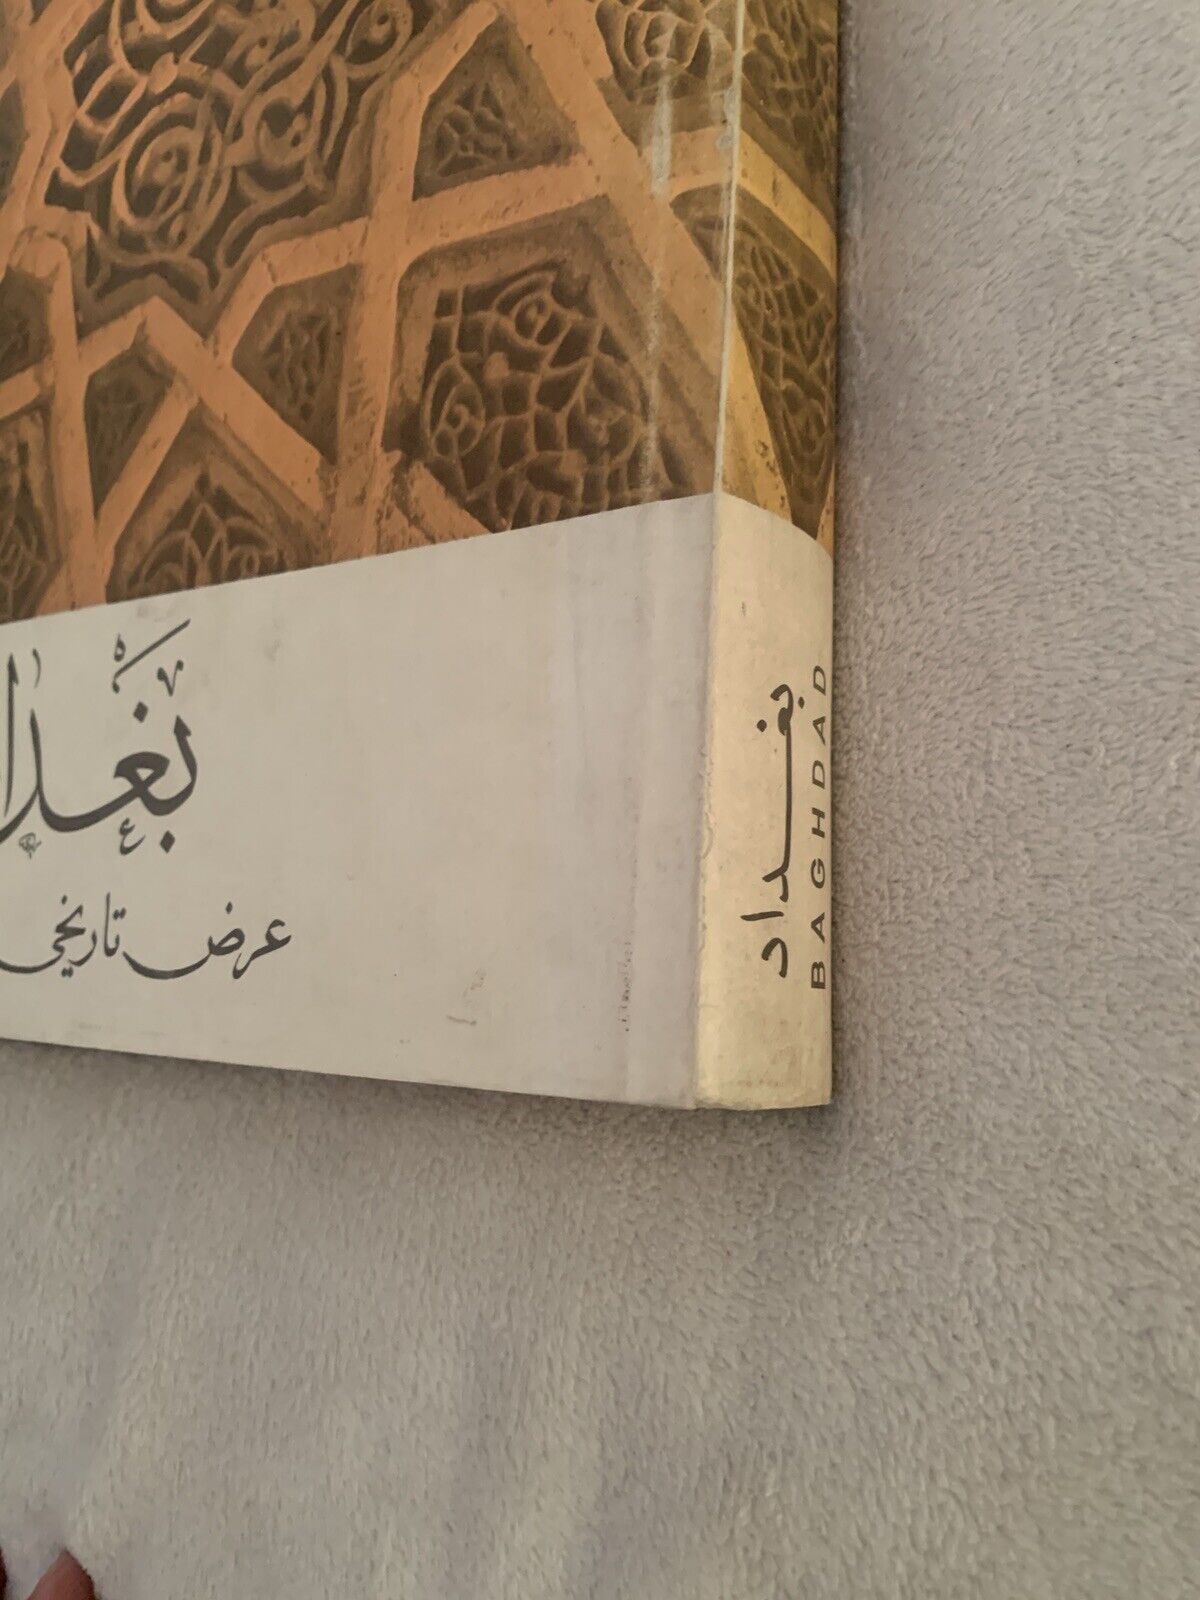 بَغْدا
عرض تاريخي
بغداد
BAGHDAD